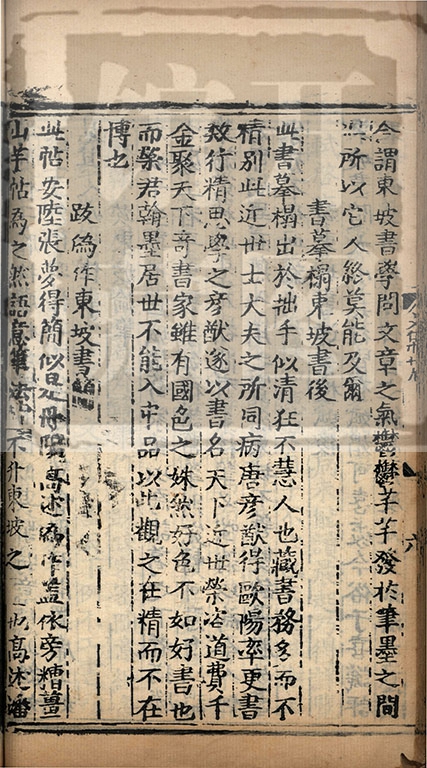 今謂東坡書學問文章之氣鬱鬱芊芊發於筆墨之間
此所以它人終莫能及爾
書摹榻東坡書後
此書摹榻出於拙手似清狂不慧人也藏書務多而不
精別此近世士大夫之所同病唐彦猷得歐陽率更書
數行精思學之彦猷遂以書名天下近世榮咨道費千
金聚天下奇書家雖有國色之姝然好色不如好書也
而榮君翰墨居世不能入中品以此觀之在精而不在
博也
跋為作東坡書簡
此帖安陸張夢得簡似是丹陽高述為作蓋依旁糟薑
山芋帖為之然語意筆法不升東坡之也高述潘
六